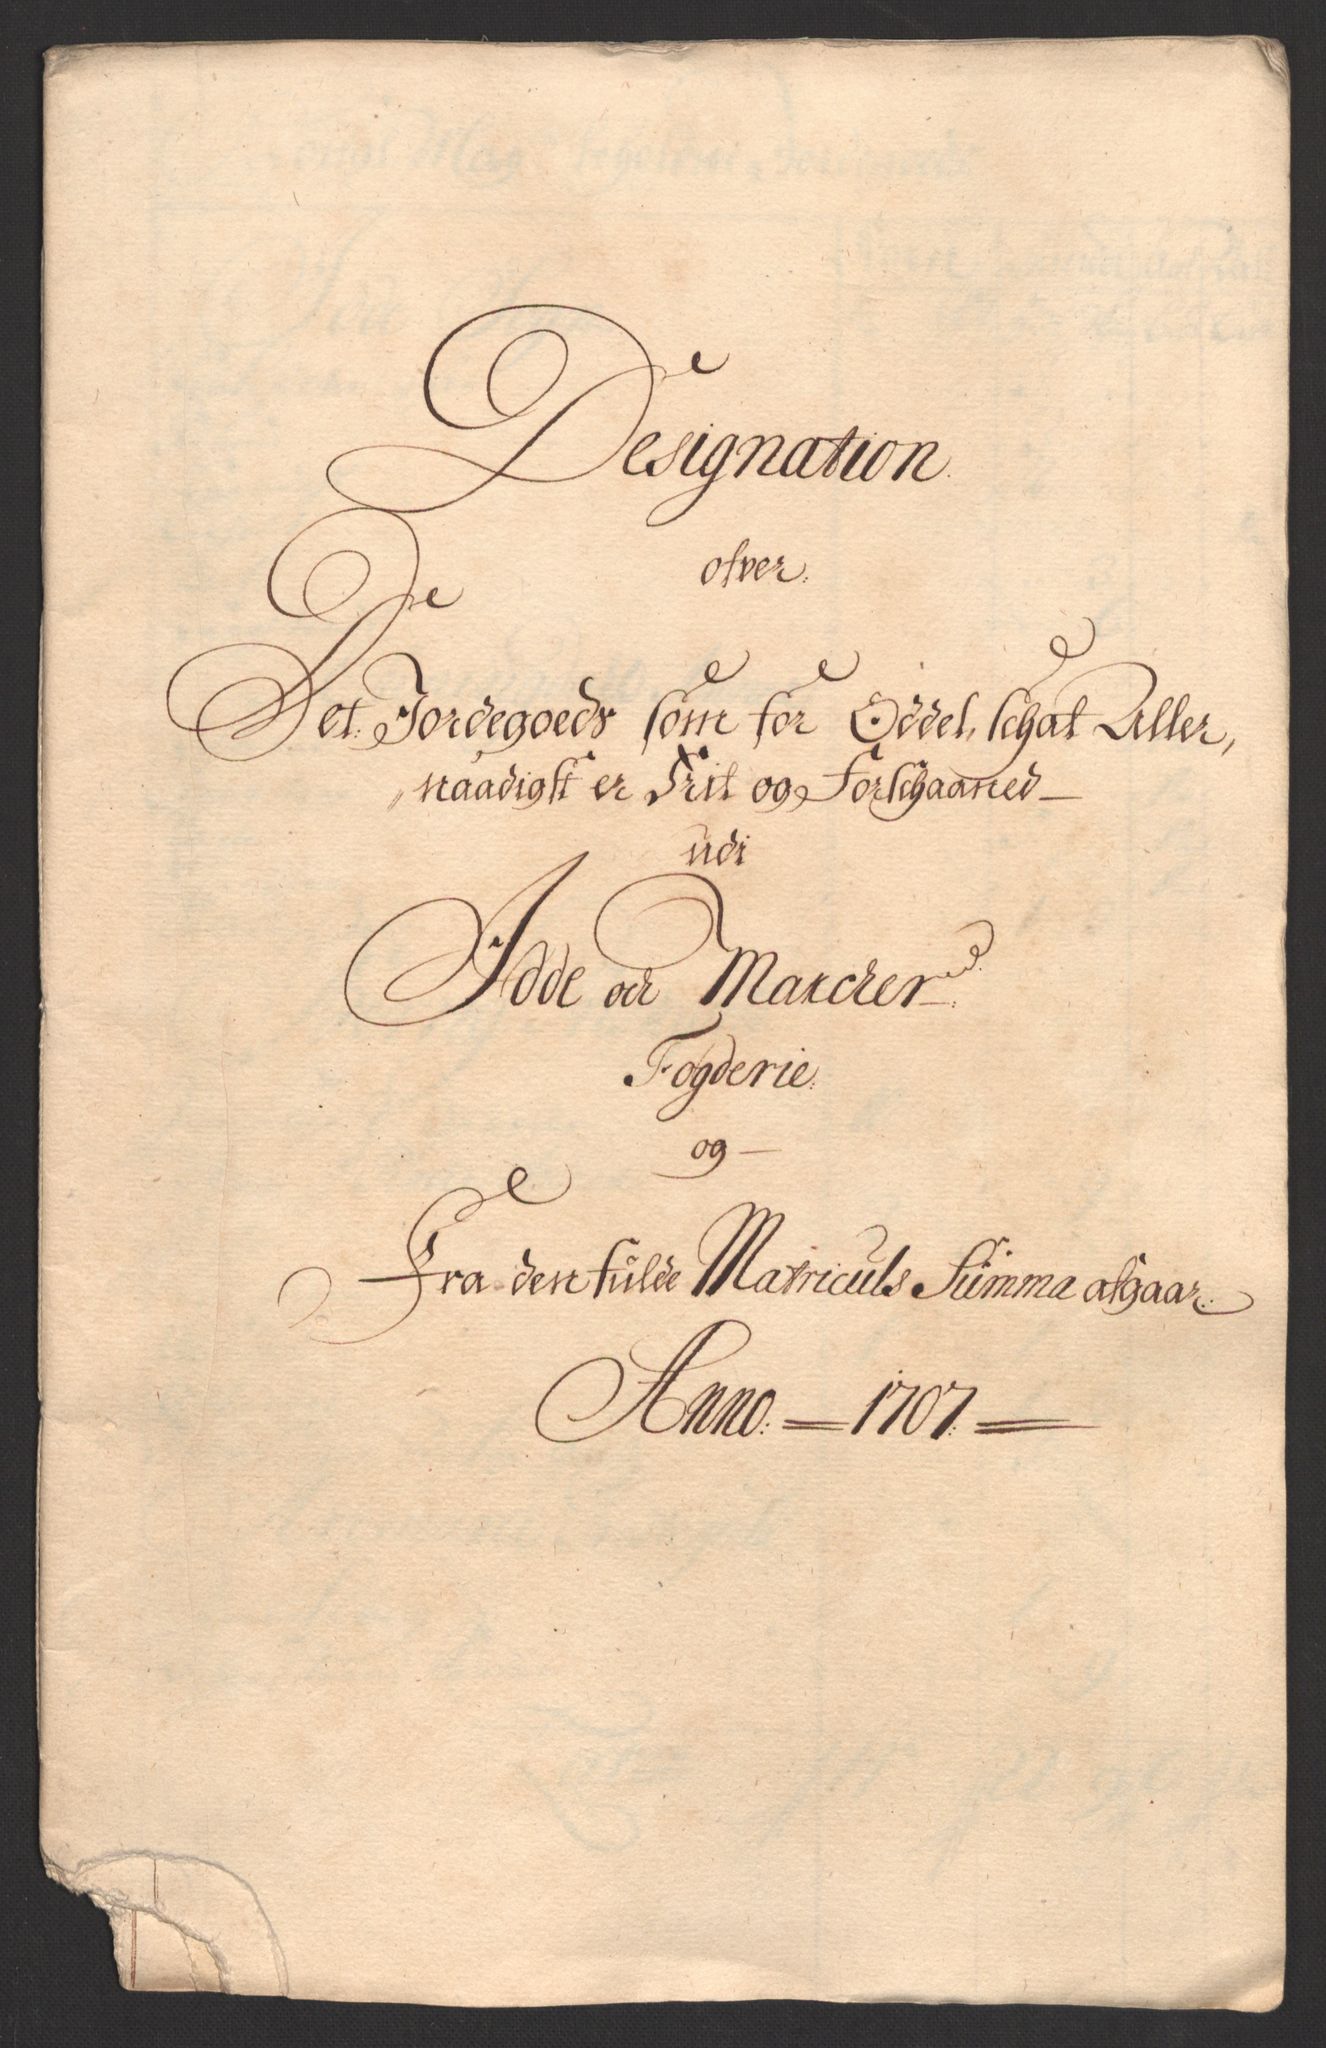 Designation.
ofver.
Det Jordegoeds som for Oddel, schat Aller,
,,naadigst er Frit og Forschaaned
udi
Idde och Marcker
Fogderie.
og
Fra den fulde Matriculs Summa afgaar.
Anno. 1707.